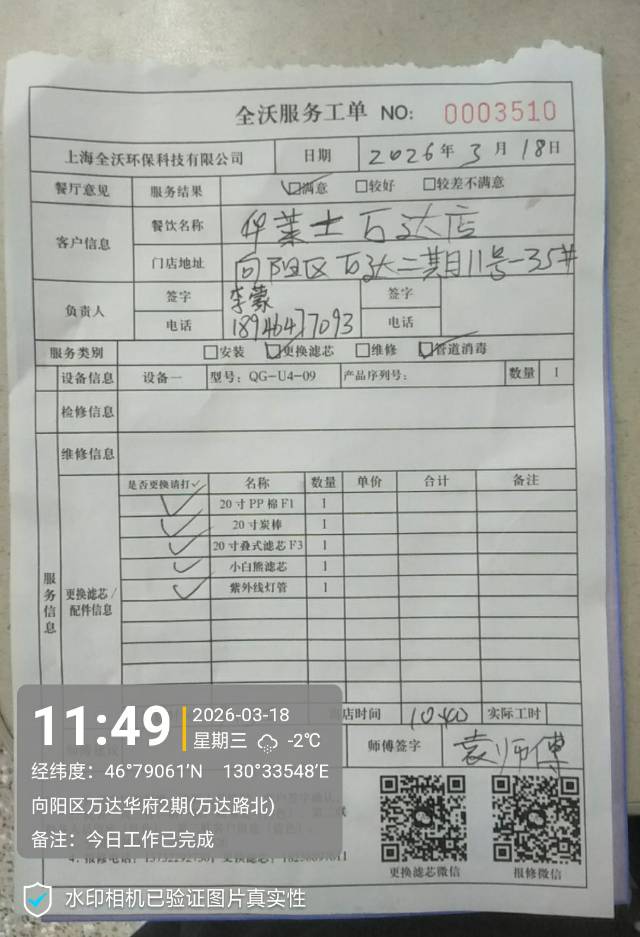 全沃服务工单 NO: 0003510
上海全沃环保科技有限公司 日期 2026年 3 月 18日
餐厅意见 服务结果 ☑满意 □较好 □较差不满意
客户信息 餐饮名称 华莱士万达店
门店地址 向阳区万达二期目11号-35#
负责人 签字 李蒙 签字
电话 18946477093 电话
服务类别 □安装 ☑更换滤芯 □维修 ☑管道消毒
设备信息 设备一 型号: QG-U4-09 产品序列号: 数量 1
检修信息
维修信息
服务信息
更换滤芯/配件信息
是否更换请打✓ 名称 数量 单价 合计 备注
✓ 20寸PP棉F1 1
✓ 20寸炭棒 1
✓ 20寸叠式滤芯F3 1
✓ 小白熊滤芯 1
✓ 紫外线灯管 1
店时间 10:40 实际工时
师傅签字 袁师傅
更换滤芯微信 报修微信
11:49 2026-03-18
星期三 -2℃
经纬度: 46°79061′N 130°33548′E
向阳区万达华府2期(万达路北)
备注: 今日工作已完成
水印相机已验证图片真实性